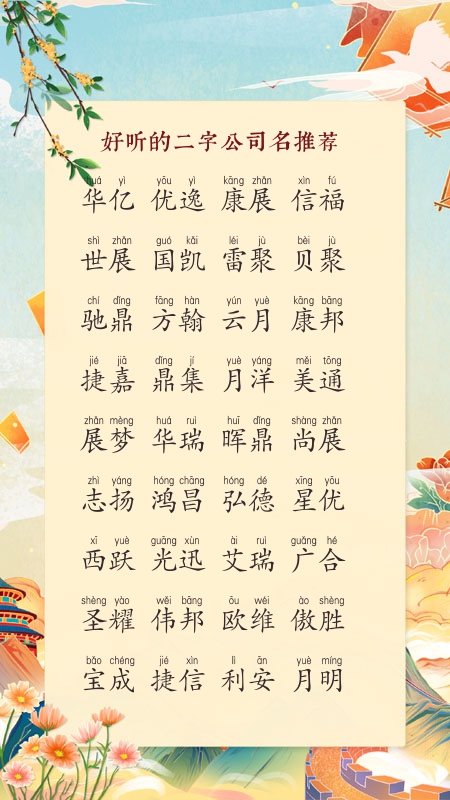 好听的二字公司名推荐
huá yì yōu yì kāng zhǎn xìn fú
华亿 优逸 康展 信福
shì zhǎn guó kǎi léi jù bèi jù
世展 国凯 雷聚 贝聚
chí dǐng fāng hàn yún yuè kāng bāng
驰鼎 方翰 云月 康邦
jié jiā dǐng jí yuè yáng měi tōng
捷嘉 鼎集 月洋 美通
zhǎn mèng huá ruì huī dǐng shàng zhǎn
展梦 华瑞 晖鼎 尚展
zhì yáng hóng chāng hóng dé xīng yōu
志扬 鸿昌 弘德 星优
xī yuè guāng xùn ài ruì guǎng hé
西跃 光迅 艾瑞 广合
shèng yào wěi bāng ōu wéi ào shèng
圣耀 伟邦 欧维 傲胜
bǎo chéng jié xìn lì ān yuè míng
宝成 捷信 利安 月明